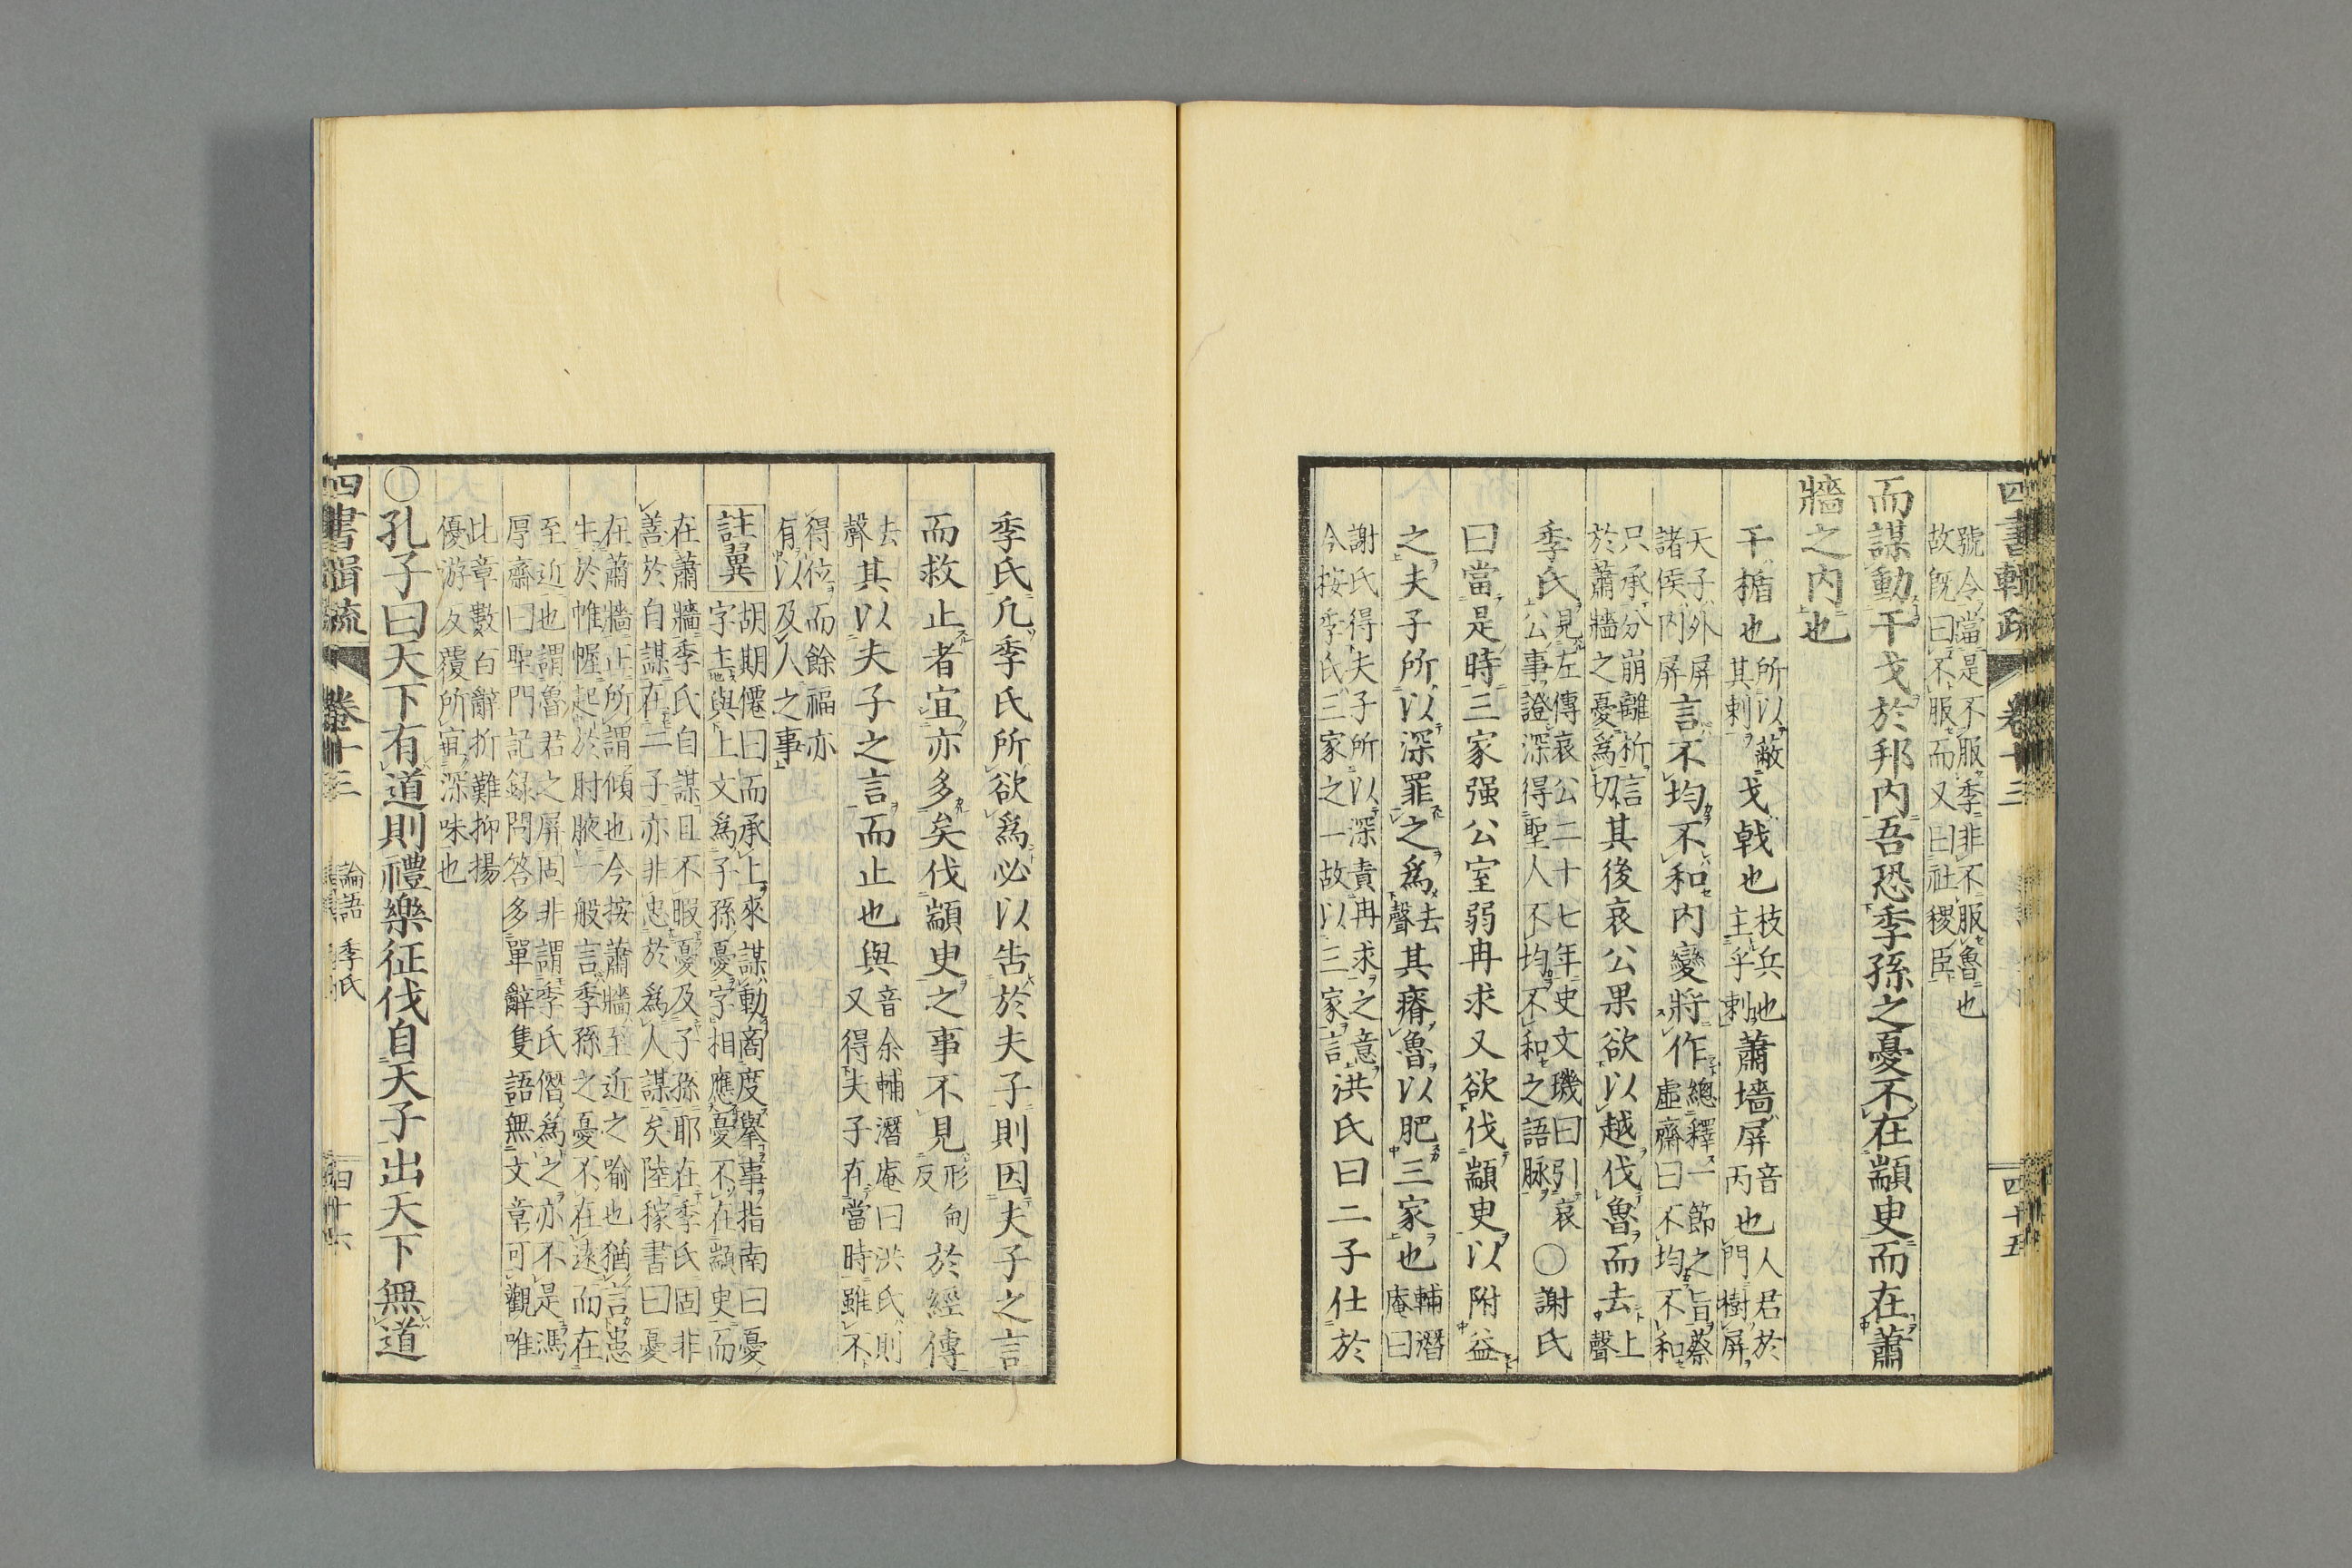 四書輯疏 卷十三 四十五
號令當是不服季非不服魯也
故既曰不服而又曰社稷臣
而謀動干戈於邦內吾恐季孫之憂不在顓臾而在蕭
牆之內也
干楯也所以蔽其刺戈戟也枝兵也主乎刺蕭墻屏音丙也人君於門樹屏
天子外屏諸侯內屏言不均不和內變將作總釋一節之旨蔡虛齋曰不均不和
只承分崩離析言於蕭牆之憂爲切其後哀公果欲以越伐魯而去上聲
季氏見左傳哀公二十七年史文璣曰引哀公事證深得聖人不均不和之語脉○謝氏
曰當是時三家强公室弱冉求又欲伐顓臾以附益
之夫子所以深罪之爲去聲其瘠魯以肥三家也輔潛庵曰
謝氏得夫子所以深責冉求之意今按季氏三家之一故以三家言洪氏曰二子仕於
季氏凢季氏所欲爲必以告於夫子則因夫子之言
而救止者宜亦多矣伐顓臾之事不見形甸反於經傳
去聲其以夫子之言而止也與音余輔潛庵曰洪氏則又得夫子在當時雖不
得位而餘福亦有以及人之事
註翼 胡期僊曰而承上來謀動商度擧事指南曰憂字與上文爲子孫憂字相應憂不在顓臾而
在蕭牆季氏自謀且不暇憂及子孫耶在季氏固非善於自謀在二子亦非忠於爲人謀矣陸稼書曰憂
在蕭牆正所謂傾也今按蕭牆至近之喻也猶言患生於帷幄起於肘腋一般言季孫之憂不在遠而在
至近也謂魯君之屏固非謂季氏僭爲之亦不是馮厚齋曰聖門記録問答多單辭隻語無文章可觀唯
比章數百辭折難抑揚優游反覆所宜深味也
○孔子曰天下有道則禮樂征伐自天子出天下無道
四書輯疏 卷十三 論語 季氏 四十六